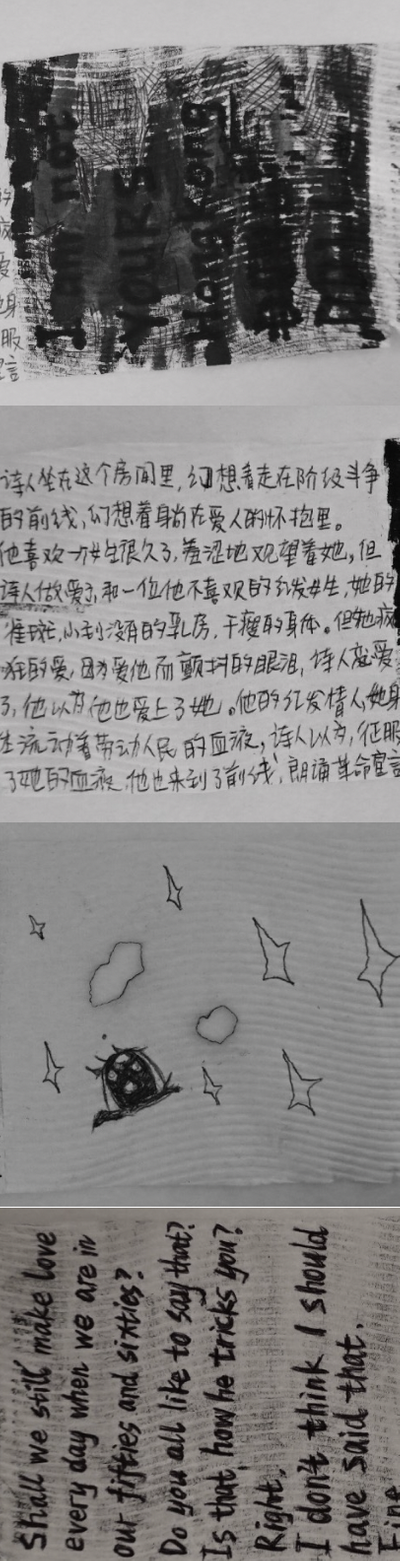 I am not
YOURS
Hong Kong
诗人坐在这个房间里,幻想着走在阶级斗争
的前线,幻想着身尚在爱人的怀抱里。
他喜欢一女生很久了,羞涩地观望着她,但
诗人做爱了,和一位他不喜欢的红发女生,她的
雀斑,小到没有的乳房,干瘦的身体。但她疯
狂的爱,因为爱他而颤抖的眼泪,诗人恋爱
了,他以为他也爱上了她。他的红发情人,她身
生流动着劳动人民的血液,诗人以为,征服
了她的血液,他也来到了前线,朗诵革命宣言
Shall we still make love
every day when we are in
our fifties and sixties?
Do you all like to say that?
Is that how he tricks you?
Right.
I don't think I should
have said that.